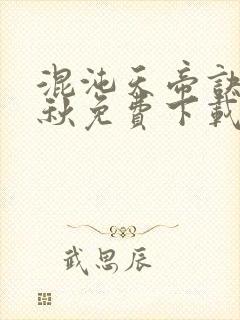 混沌天帝訣
秋免費下載
武思辰